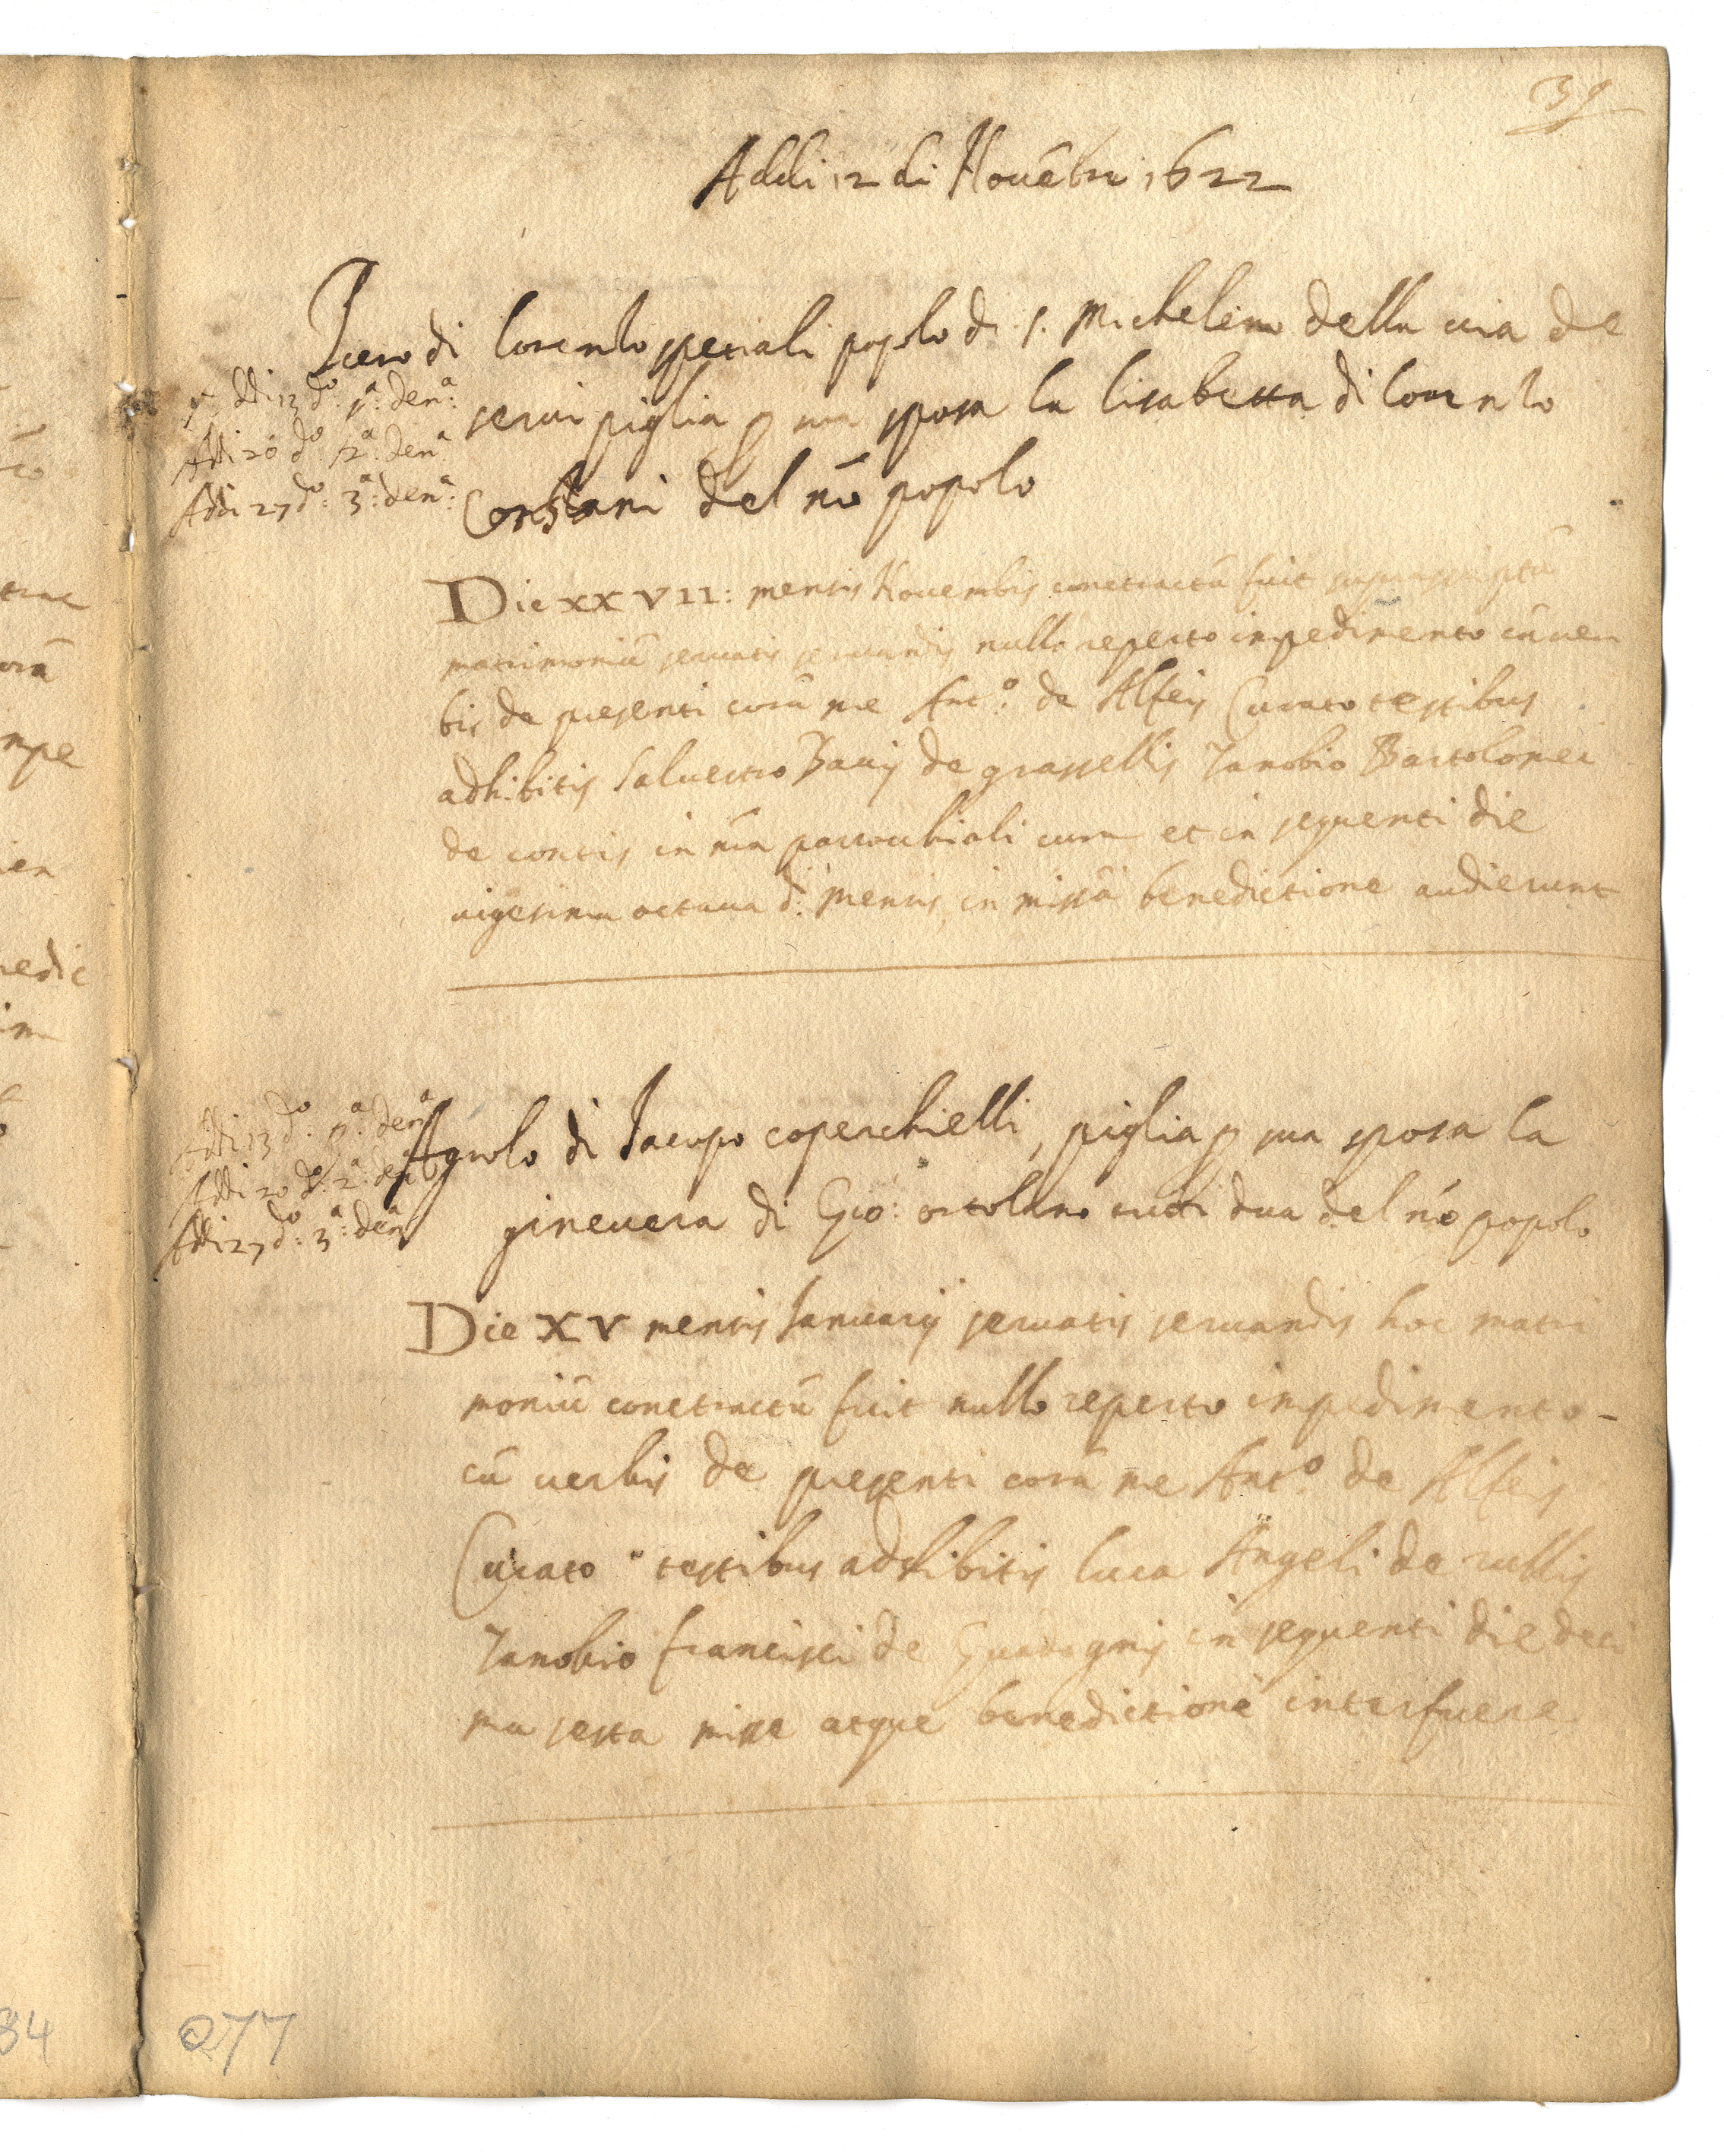 39
Addi 12 di Nouẽbre 1622
Piero di lorenzo spetiali popolo di S. Michelino della uia de
serui piglia p sua sposa la lisabetta di lorenzo
del nr̃o popolo
Addi 13 d.º 1.ª den.ª:
Addi 20 d.º 2.ª den.ª
Addi 27 d.º: 3.ª: den.ª:
Die XXVII: mensis Nouembis conctractũ fuit suprascriptũ
matrimoniũ seruatis seruandis nullo reperto inpedimento cũ uer
bis de presenti corã me Ant.º de Alfeis Curato testibus
adhibitis Saluestro de grassellis Zanobio Bartolomei
de contis in nr̃a parrochiali cura et in sequenti die
uigesima octaua d.º Mensis in missã benedictione audierunt
Addi 13 d.º: p.ª: den.ª
Addi 20 d.º: 2.ª: den.ª
Addi 27 d.º: 3.ª: den.ª
Agnolo di Iacopo coperchielli, piglia p sua sposa la
gineuera di Gio: ortolano tutti dua del nr̃o popolo
Die XV mensis Ianuarij seruatis seruandis hoc matri
moniũ conctractũ fuit nullo reperto impedimento -
cũ uerbis de presenti corã me Ant.º de Alfeis
Curato testibus adhibitis luca Angeli de rullis
Zanobio francisci de Guadagnis in sequenti die deci
ma sesta misse atque benedictione interfuere
84
277